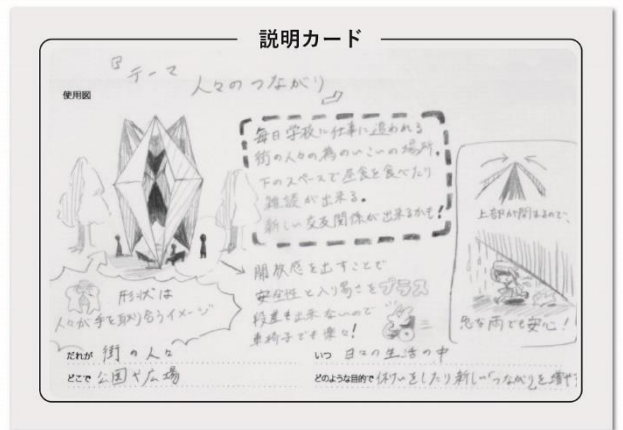 説明カード
『テーマ
人々のつながり』
使用図
毎日学校に仕事に追われる
街の人々の為のいこいの場所。
下のスペースで昼食を食べたり
雑談が出来る。
新しい交友関係が出来るかも!
上部が閉まるので、
急な雨でも安心!
開放感を出すことで
安全性と入り易さをプラス
段差も出来ないので
車椅子でも楽々!
形状は
人々が手を取り合うイメージ
だれが 街の人々
いつ 日々の生活の中
どこで 公園や広場
どのような目的で 休けいをしたり新しい「つながり」を増やす